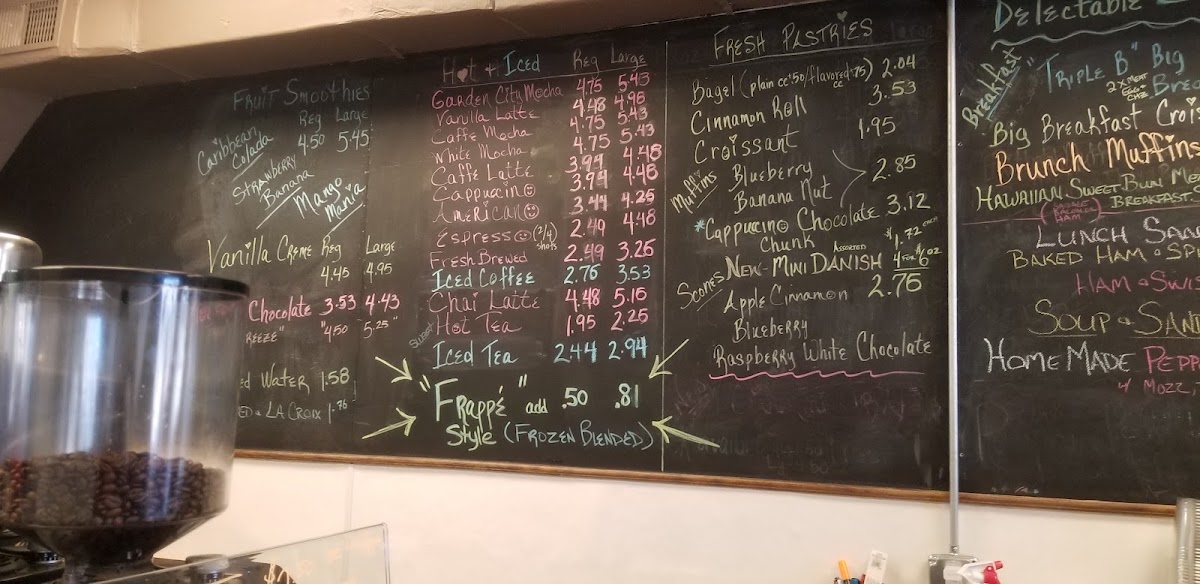 Fruit Smoothies
Reg Large
Caribbean Colada 4.50 5.45
Strawberry Banana
Mango Mania
Vanilla Creme Reg Large
4.45 4.95
Chocolate 3.53 4.43
REEZE" "4.50 5.25"
ed Water 1.58
ED & La Croix 1.76
Hot & Iced Reg Large
Garden City Mocha 4.75 5.43
Vanilla Latte 4.48 4.95
Caffe Mocha 4.75 5.43
White Mocha 4.75 5.43
Caffe Latte 3.94 4.48
Cappuccino 3.94 4.48
Americano 3.44 4.25
Espresso (2/4) shots 2.49 4.48
Fresh Brewed 2.49 3.25
Iced Coffee 2.76 3.53
Chai Latte 4.48 5.16
Hot Tea 1.95 2.25
Sweet Iced Tea 2.44 2.94
"Frappé" add .50 .81
Style (Frozen Blended)
Fresh Pastries
Bagel (plain cc .50/flavored cc .75) 2.04
Cinnamon Roll 3.53
Croissant 1.95
Muffins Blueberry
Banana Nut 2.85
*Cappuccino Chocolate Chunk 3.12
New-Mini Danish Assorted $1.72 each
4 for $6.02
Scones Apple Cinnamon 2.76
Blueberry
Raspberry White Chocolate
Delectable
Breakfast
"Triple B" Big
2x Meat Egg & Chz Bre
Big Breakfast Croi
Brunch Muffins
Hawaiian Sweet Bun Me
(Sausage Bacon or Ham) Breakfast
Lunch San
Baked Ham & Sp
Ham & Swi
Soup & San
Home Made Pepp
w/ Mozz